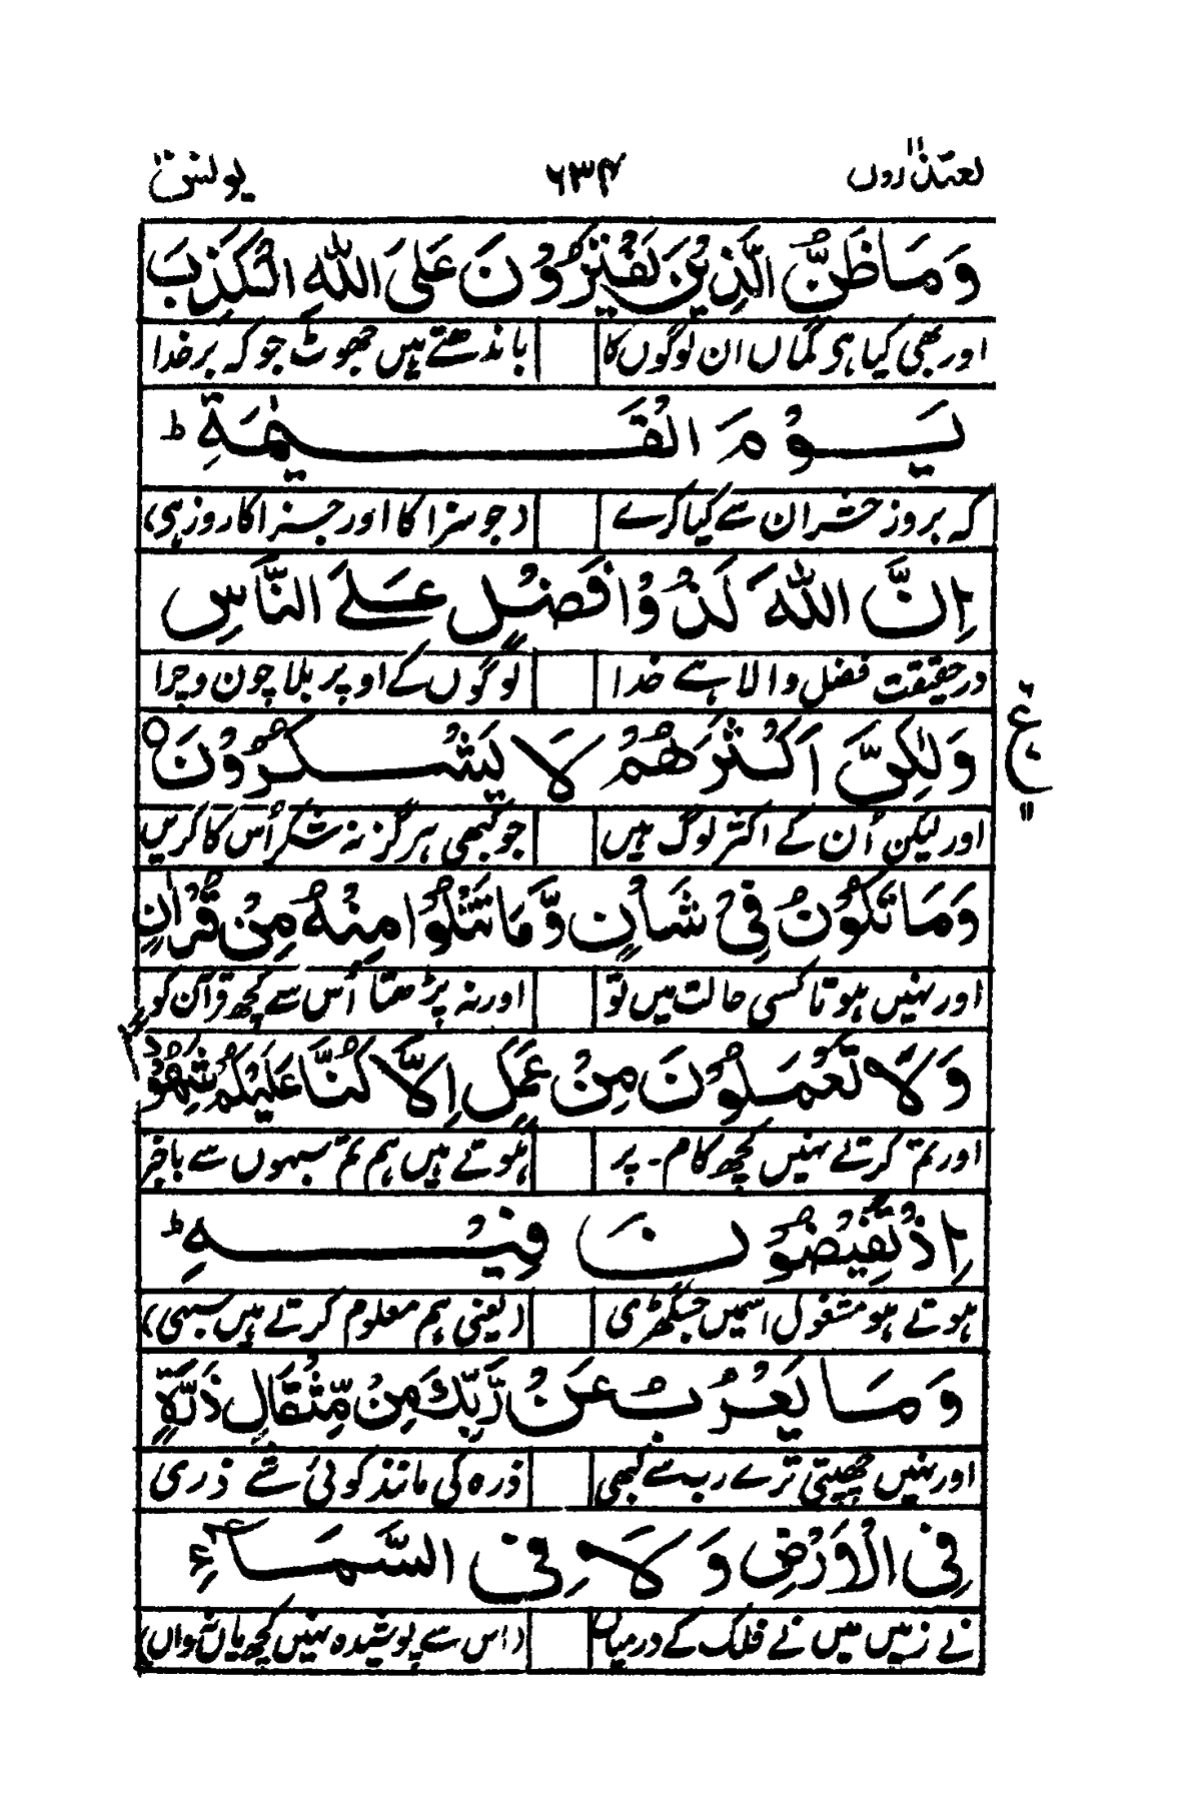 یعتذرون ۱۱ ۶۳۴ یونس ۱۰
وَمَا ظَنُّ الَّذِيْنَ يَفْتَرُوْنَ عَلَى اللّٰهِ الْكَذِبَ
اور بھی کیا ہی گماں ان لوگوں کا باندھتے ہیں جھوٹ جو کہ بر خدا
يَوْمَ الْقِيٰمَةِ ط
کہ بروز حشر ان سے کیا کرے (جو سزا کا اور جزا کا روز ہی)
اِنَّ اللّٰهَ لَذُوْا فَضْلٍ عَلَى النَّاسِ
در حقیقت فضل والا ہے خدا لوگوں کے اوپر بلا چون و چرا
وَلٰكِنَّ اَكْثَرَهُمْ لَا يَشْكُرُوْنَ ○
ع ۱۱
اور لیکن اُن کے اکثر لوگ ہیں جو کبھی ہرگز نہ شکر اُس کا کریں
وَمَا تَكُوْنُ فِيْ شَاْنٍ وَّمَا تَتْلُوْا مِنْهُ مِنْ قُرْاٰنٍ
اور نہیں ہوتا کسی حالت میں تو اور نہ پڑھتا اُس سے کچھ قرآن کو
وَّلَا تَعْمَلُوْنَ مِنْ عَمَلٍ اِلَّا كُنَّا عَلَيْكُمْ شُهُوْدًا
اور تم کرتے نہیں کچھ کام ۔ پر ہوتے ہیں ہم تم سبہوں سے باخبر
اِذْ تُفِيْضُوْنَ فِيْهِ ط
ہوتے ہو مشغول اسمیں جس گھڑی (یعنی ہم معلوم کرتے ہیں سبھی)
وَمَا يَعْزُبُ عَنْ رَّبِّكَ مِنْ مِّثْقَالِ ذَرَّةٍ
اور نہیں چھپتی ترے رب سے کبھی ذرہ کی مانند کوئی شے ذری
فِى الْاَرْضِ وَلَا فِى السَّمَآءِ
نے زمیں میں نے فلک کے درمیاں (اس سے پوشیدہ نہیں کچھ یاں نہ واں)